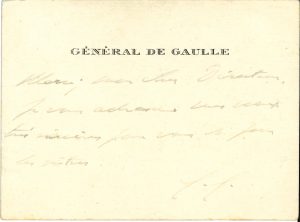 GÉNÉRAL DE GAULLE
Merci, mon cher Directeur,
Je vous adresse mes vœux
très sincères pour vous et pour
les vôtres.